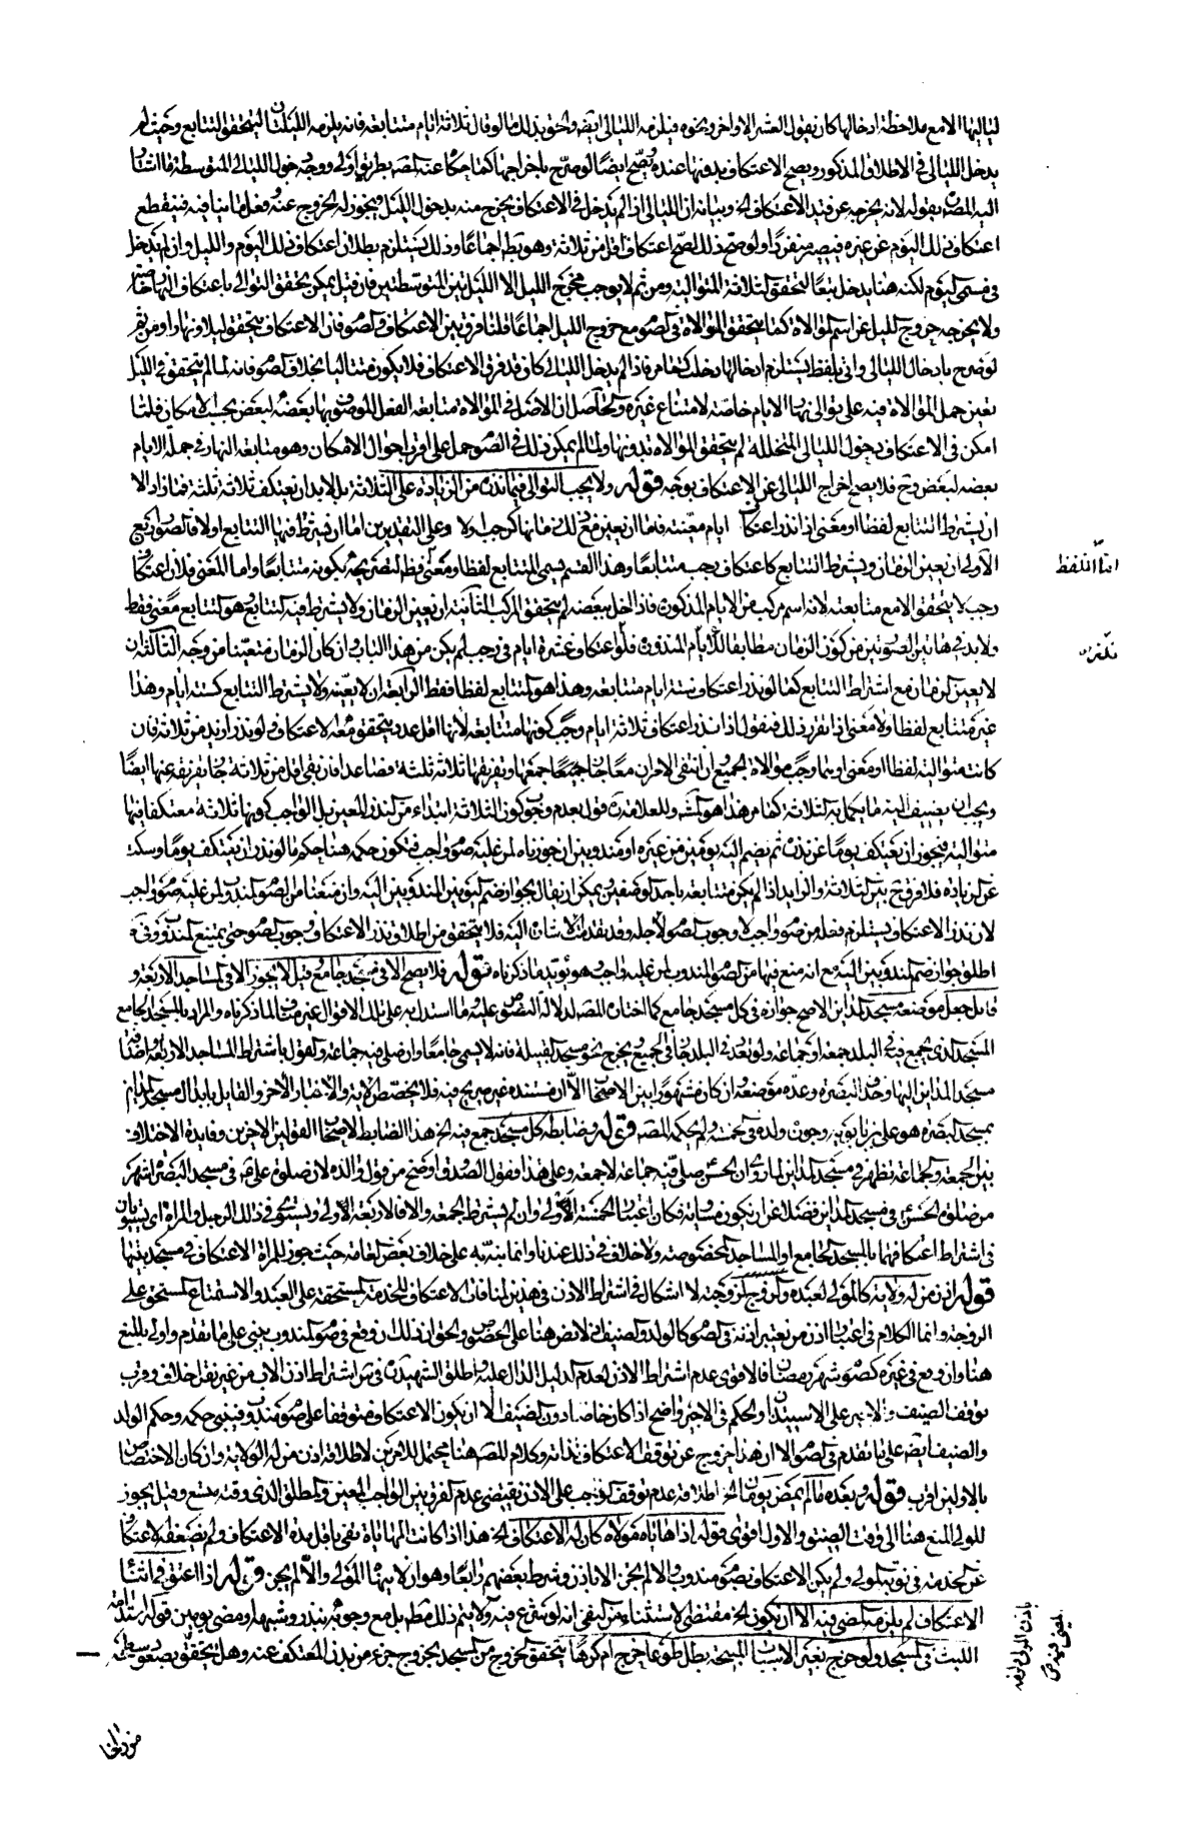 لياليها الا مع ملاحظة ادخالها كان يقول العشر الاواخر ونحوه فيلزمه الليالي ايضا والحق بذلك ما لو قال ثلاثة ايام متتابعة فانه يلزمه الليلتان ليتحقق التتابع وحيث لم
يدخل الليالي في الاطلاق المذكور ويصح الاعتكاف بدونها عنده يصح ايضا لو صرح باخراجها كما حكاه عنه المصـ بطريق اولى ووجه دخول الليالي المتوسطة ما اشار
اليه المصنف بقوله لانه يخرجه عن قيد الاعتكاف الخ وبيانه ان الليالي اذا لم يدخل في الاعتكاف يخرج منه بدخول الليل فيجوز له الخروج عنه وفعل ما ينافيه فينقطع
اعتكاف ذلك اليوم عن غيره فيصير منفردا ولو صح ذلك لصح اعتكاف اقل من ثلاثة وهو بط اجماعا وذلك يستلزم بطلان اعتكاف ذلك اليوم والليل وان لم يدخل
في مسمى اليوم لكنه هنا يدخل تبعا لتحقق الثلاثة المتوالية ومن ثم لا يوجب مخرج الليل الا الليلتين المتوسطتين فان قيل يمكن تحقق التوالي باعتكاف النهار خاصة
ولا يخرجه خروج الليل عن اسم الموالاة كما يتحقق الموالاة في الصوم مع خروج الليل اجماعا قلنا فرق بين الاعتكاف والصوم فان الاعتكاف يتحقق ليلا ونهارا ومن ثم
لو صرح بادخال الليالي واتى بلفظ يستلزم ادخالها دخلت كما مر فاذا لم يدخل الليالي كان قد فرق الاعتكاف فلا يكون متتاليا بخلاف الصوم فانه لما لم يتحقق في الليل
تعين حمل الموالاة فيه على توالي نهار الايام خاصة لامتناع غيره والحاصل ان الاصل في الموالاة متابعة الفعل الموصوف بها بعضه لبعض بحسب الامكان فلما
امكن في الاعتكاف دخول الليالي المتخللة لم يتحقق الموالاة بدونها ولما لم يمكن ذلك في الصوم حمل على اقرب احوال الامكان وهو متابعة النهار في جملة الايام
بعضه لبعض وح فلا يصح اخراج الليالي عن الاعتكاف بوجه قوله ولا يجب التوالي فيما نذره من الزيادة على الثلاثة بل لا بد ان يعتكف ثلاثة ثلثة فما زاد الا
ان يشترط التتابع لفظا او معنى اذا نذر اعتكاف ايام معينة فاما ان يعين مع ذلك زمانها كرجب او لا وعلى التقديرين اما ان يشترط فيها التتابع او لا فالصور اربع
الاولى ان يعين الزمان ويشترط التتابع كاعتكاف رجب متتابعا وهذا القسم يسمى المتتابع لفظا ومعنى لفظا لتصريحه بكونه متتابعا واما المعنى فلان اعتكاف
رجب لا يتحقق الا مع متابعته لانه اسم مركب من الايام المذكورة فاذا اخل ببعضه لم يتحقق المركب الثانية ان يعين الزمان ولا يشترط فيه التتابع وهو التتابع معنى فقط
ولا بد في هاتين الصورتين من كون الزمان مطابقا للايام المنذورة فلو اعتكاف عشرة ايام في رجب لم يكن من هذا الباب وان كان الزمان متعينا من وجه الثالثة ان
لا يعين الزمان مع اشتراط التتابع كما لو نذر اعتكاف ستة ايام متتابعة وهذا هو التتابع لفظا فقط الرابعة ان لا يعينه ولا يشترط التتابع كستة ايام وهذا
غير متتابع لفظا ولا معنى اذا تقرر ذلك فنقول اذا نذر اعتكاف ثلاثة ايام وجب كونها متتابعة لانها اقل عدد يتحقق معه الاعتكاف ولو نذر ازيد من ثلاثة فان
كانت متوالية لفظا او معنى او بهما وجب موالاة الجميع وان انتفى الامران معا جاز جمعها وتفريقها ثلاثة ثلثة فصاعدا فان بقى اقل من ثلاثة جاز تفريقه عنها ايضا
ويجب ان يضيف اليه ما يكمل به الثلاثة كما مر هذا هو المشهور وللعلامة قول بعدم وجوب كون الثلاثة ابتداء من النذر المعين بل الواجب كونها ثلاثة معتكفا فيها
متوالية فيجوز ان يعتكف يوما عن نذره ثم يضم اليه يومين من غيره او مندوبين ان جوزناه لمن عليه صوم واجب فتكون حكمه هنا حكم ما لو نذر ان يعتكف يوما وسكت
عن الزيادة فلا فرق ح بين الثلاثة والزايد اذا لم يكن متتابعة باحد الوصفين يمكن ان يقال بجواز ضم اليومين المندوبين اليه وان منعنا من الصوم المندوب لمن عليه صوم واجب
لان نذر الاعتكاف يستلزم فعله من صوم واجب لا وجوب الصوم لاجله وقد تقدمت الاشارة اليه فلا يتحقق من اطلاق نذر الاعتكاف وجوب الصوم حتى يمتنع المندوب وفي
اطلق جواز ضم المندوبين اليه مع انه منع فيها من الصوم المندوب لمن عليه واجب وهو يؤيد ما ذكرناه قوله فلا يصح الا في مسجد جامع وقيل لا يجوز الا في المساجد الاربعة و
قائل جعل موضعه مسجد المداين الاصح جوازه في كل مسجد جامع كما اختاره المصـ لدلالة النصوص عليه وما استدل به على تلك الاقوال غير مناف لما ذكرناه والمراد بالمسجد الجامع
المسجد الذي يجمع فيه في البلد جمعة او جماعة ولو تعدد في البلد جاز في الجميع ويخرج نحو مسجد القبيلة فانه لا يسمى جامعا وان صلى فيه جماعة والقول باشتراط المساجد الاربعة واضافة
مسجد المداين اليها وحذف البصرة وعده موضعه وان كان مشهورا بين الاصحاب الا ان مستنده غير صريح فيه فلا يخصص الاية والاخبار الاخر والقايل بابدال مسجد المداين
بمسجد البصرة هو علي بن بابويه وجوز ولده في الخمسة ولم يحكه المصـ قوله وضابطه كل مسجد جمع فيه الخ هذا الضابط لاصحاب القولين الاخرين وفايدة الاختلاف
بين الجمعة والجماعة تظهر في مسجد المداين لما روي ان الحسن صلى فيه جماعة لا جمعة وعلى هذا فقول الصدوق اوضح من قول والده لان صلوة علي في مسجد البصرة اشهر
من صلوة الحسن في مسجد المداين فضلا عن ان يكون مساوية فكان اعتبار الخمسة اولى وان لم يشترط الجمعة والا فالاربعة الاولى ويستوي في ذلك الرجل والمراة اي يستويان
في اشتراط اعتكافهما بالمسجد الجامع او المساجد المخصوصة ولا خلاف في ذلك عندنا وانما نبه به على خلاف بعض العامة حيث جوز للمراة الاعتكاف في مسجد بيتها
قوله اذن من له ولاية كالمولى لعبده والزوج لزوجته لا اشكال في اشتراط الاذن في هذين لمنافات الاعتكاف للخدمة المستحقة على العبد والاستمتاع المستحق على
الزوجة وانما الكلام في اعتبار اذن من يعتبر اذنه في الصوم كالولد والضيف اذ لا نص هنا على الخصوص والحق ان ذلك ان وقع في صوم مندوب بني على ما تقدم واولى بالمنع
هنا وان وقع في غيره كصوم شهر رمضان فالاقوى عدم اشتراط الاذن لعدم الدليل الدال عليه واطلق الشهيد في س اشتراط اذن الاب من غير نقل خلاف وقرب
توقف الضيف والاجير على الاستيذان والحكم في الاجير واضح اذا كان خاصا دون الضيف الا ان يكون الاعتكاف متوقفا على صوم مندوب فيبنى حكمه وحكم الولد
والضيف ايضا على ما تقدم في الصوم الا ان هذا خروج عن توقف الاعتكاف لذاته وكلام المصـ هنا محتمل للامرين لاطلاقه اذن من له الولاية وان كان الاختصاص
بالاولين اقرب قوله وبعده ما لم يمض يومان الخ اطلاقه عدم توقف الواجب على الاذن يقتضي عدم الفرق بين الواجب المعين والمطلق الذي وقته متسع وقيل يجوز
للولي المنع هنا الى وقت الضيق والاول اقوى قوله اذا هاياه مولاه كان له الاعتكاف الخ هذا اذا كانت المهاياة تفي باقل مدة الاعتكاف ولم يضعفه الاعتكاف
عن الخدمة في نوبة المولى ولم يكن الاعتكاف بصوم مندوب والا لم يجز الا باذن وشرط بعضهم رابعا وهو ان لا ينهاه المولى والا لم يجز قوله اذا اعتق في اثناء
الاعتكاف لم يلزمه المضي فيه الا ان يكون الخ مقتضى الاستثناء من النفي انه لو شرع فيه ولا يتم ذلك مط بل مع وجوبه بنذر وشبهه او مضى يومين قوله استدامة
اللبث في المسجد ولو خرج بغير الاسباب المبيحة بطل طوعا خرج ام كرها يتحقق الخروج من المسجد بخروج جزء من بدن المعتكف عنه وهل يتحقق بصعود سطحه
اما اللفظ
نذر
باذن المولى ولزمه
المضي فيه